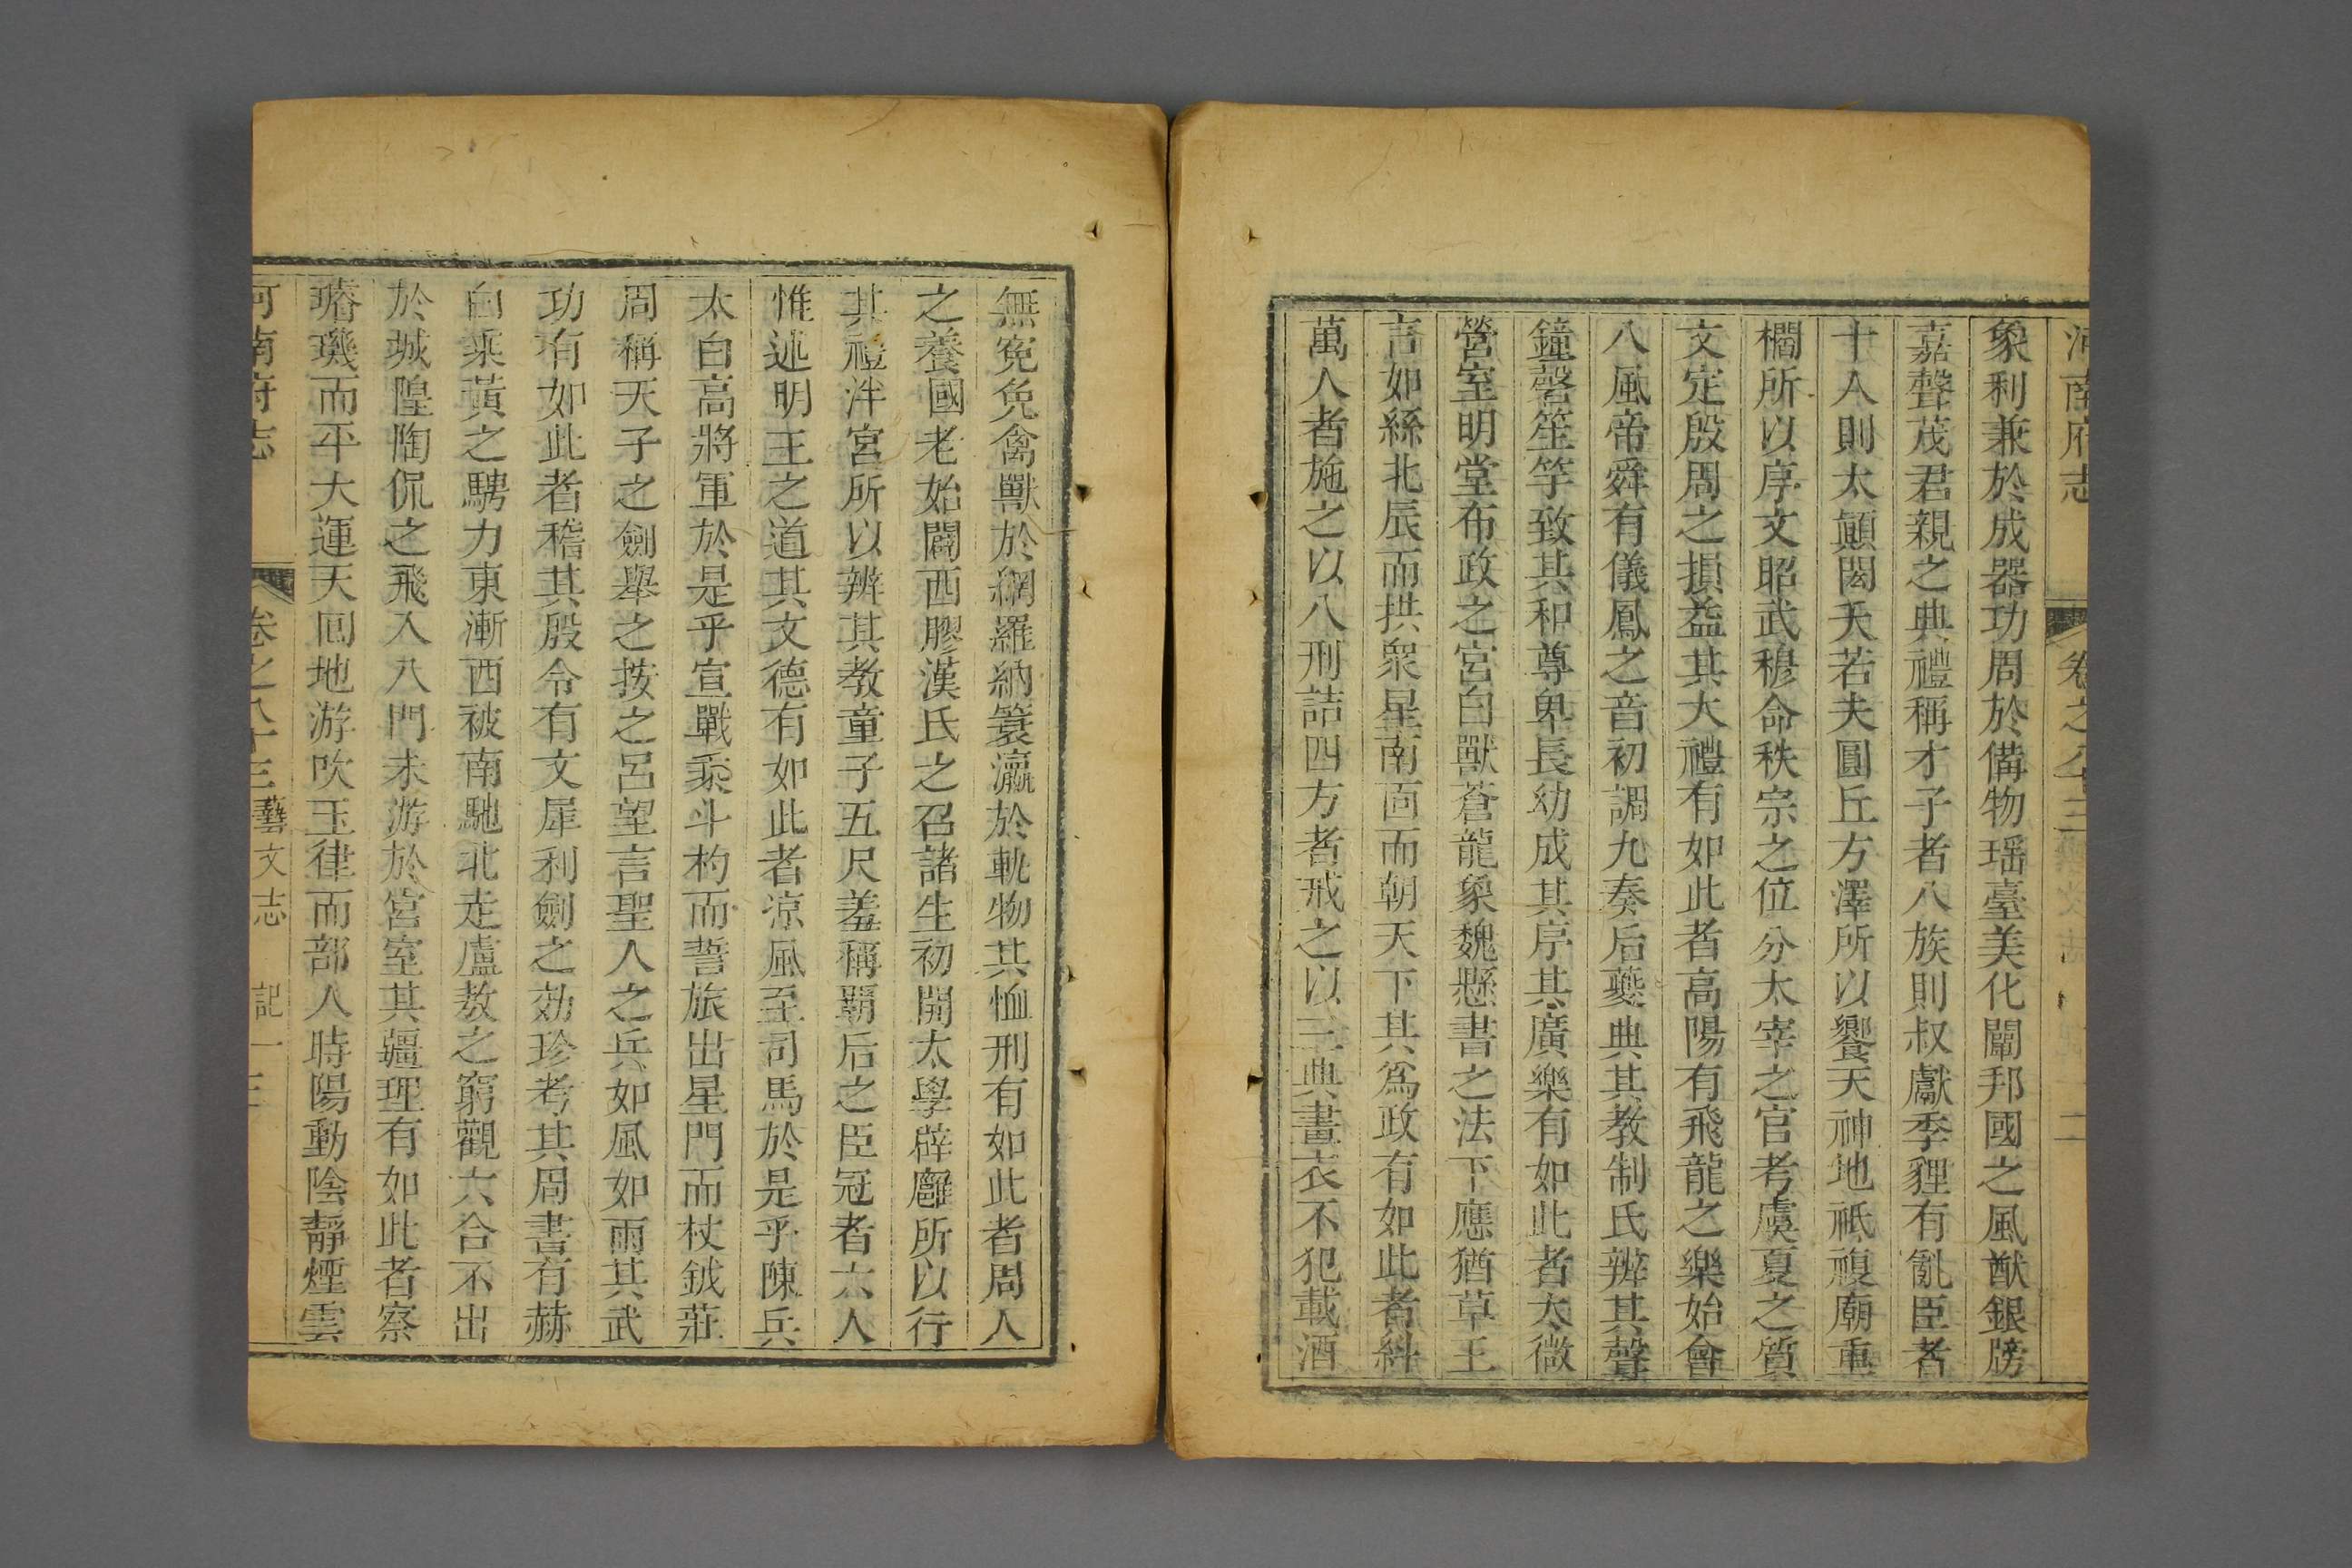 河南府志 卷之八十三 二
象利兼於成器功周於備物瑶臺美化闡邦國之風猷銀牓
嘉聲茂君親之典禮稱才子者八族則叔獻季貍有亂臣者
十人則太顛閎夭若夫圓丘方澤所以饗天神地祗複廟重
櫩所以序文昭武穆命秩宗之位分太宰之官考虞夏之質
文定殷周之損益其大禮有如此者高陽有飛龍之樂始會
八風帝舜有儀鳳之音初調九奏后夔典其教制氏辨其聲
鐘磬笙竽致其和尊卑長幼成其序其廣樂有如此者太微
營室明堂布政之宮白獸蒼龍象魏懸書之法下應猶草王
言如絲北辰而拱衆星南面而朝天下其為政有如此者糾
萬人者施之以八刑詰四方者戒之以三典畫衣不犯載酒
無寃免禽獸於網羅納簑瀛於軌物其恤刑有如此者周人
之養國老始闢西膠漢氏之召諸生初開太學辟廱所以行
其禮泮宮所以辨其教童子五尺羞稱覇后之臣冠者六人
惟述明王之道其文德有如此者涼風至司馬於是乎陳兵
太白高將軍於是乎宣戰乘斗杓而誓旅出星門而杖鉞莊
周稱天子之劍舉之按之呂望言聖人之兵如風如雨其武
功有如此者稽其殷令有文犀利劍之効珍考其周書有赫
白乘黃之騁力東漸西被南馳北走盧敖之窮觀六合不出
於城隍陶侃之飛入八門未游於宮室其疆理有如此者察
璿璣而平大運天回地游吹玉律而部人時陽動陰靜煙雲
河南府志 卷之八十三 藝文志 記一 三